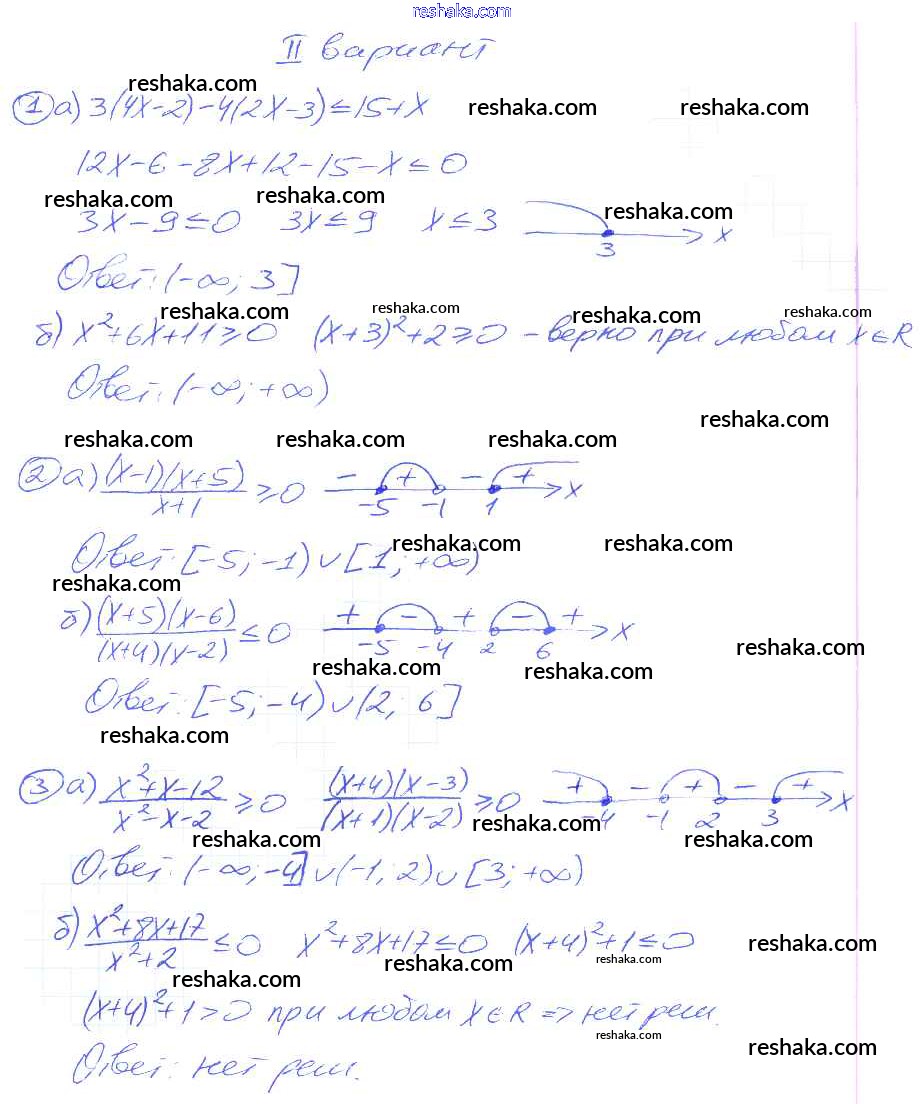 reshaka.com
II вариант
reshaka.com
① а) 3(4x-2)-4(2x-3)≤15+x
reshaka.com reshaka.com
12x-6-8x+12-15-x≤0
reshaka.com reshaka.com
3x-9≤0 3x≤9 x≤3 3 x
reshaka.com
Ответ: (-∞; 3]
reshaka.com reshaka.com reshaka.com reshaka.com
б) x²+6x+11≥0 (x+3)²+2≥0 - верно при любом x∈R
Ответ: (-∞; +∞)
reshaka.com
reshaka.com reshaka.com reshaka.com
② а) (x-1)(x+5)/x+1 ≥0 - + - + -5 -1 1 x
reshaka.com reshaka.com
Ответ: [-5; -1) ∪ [1; +∞)
reshaka.com
б) (x+5)(x-6)/(x+4)(x-2) ≤0 + - + - + -5 -4 2 6 x
reshaka.com
reshaka.com reshaka.com
Ответ: [-5; -4) ∪ (2; 6]
reshaka.com
③ а) x²+x-12/x²-x-2 ≥0 (x+4)(x-3)/(x+1)(x-2) ≥0 + - + - + -4 -1 2 3 x
reshaka.com reshaka.com reshaka.com
Ответ: (-∞; -4] ∪ (-1; 2) ∪ [3; +∞)
б) x²+8x+17/x²+2 ≤0 x²+8x+17≤0 (x+4)²+1≤0
reshaka.com
reshaka.com reshaka.com reshaka.com
(x+4)²+1>0 при любом x∈R => нет реш.
reshaka.com
reshaka.com
Ответ: нет реш.